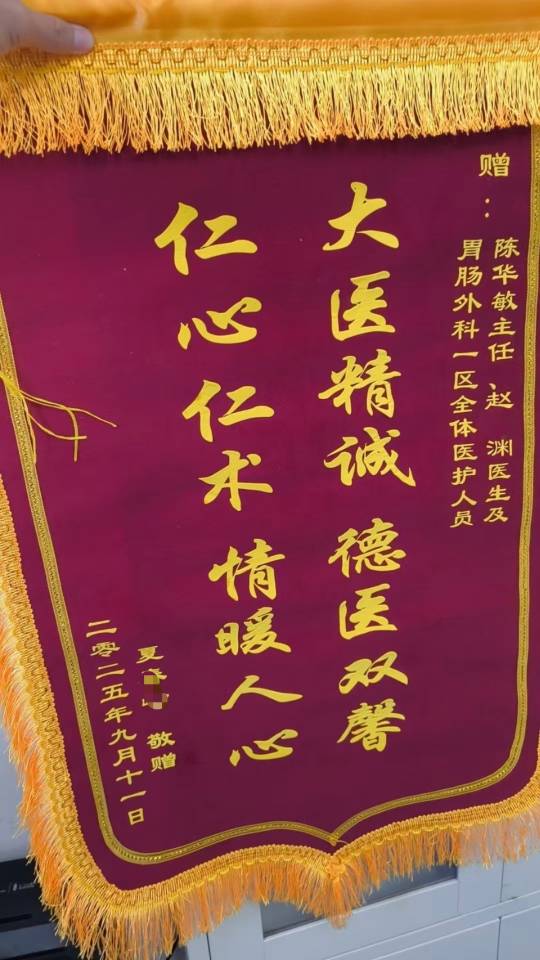 赠：
陈华敏主任 赵 渊医生及
胃肠外科一区全体医护人员
大医精诚 德医双馨
仁心仁术 情暖人心
夏 敬赠
二零二五年九月十一日